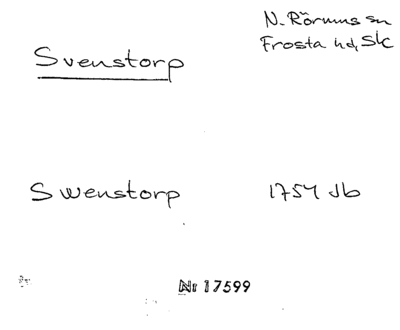 N. Rörums sn
Frosta hd, Sk
Svenstorp
Swenstorp 1754 Jb
Nr 17599